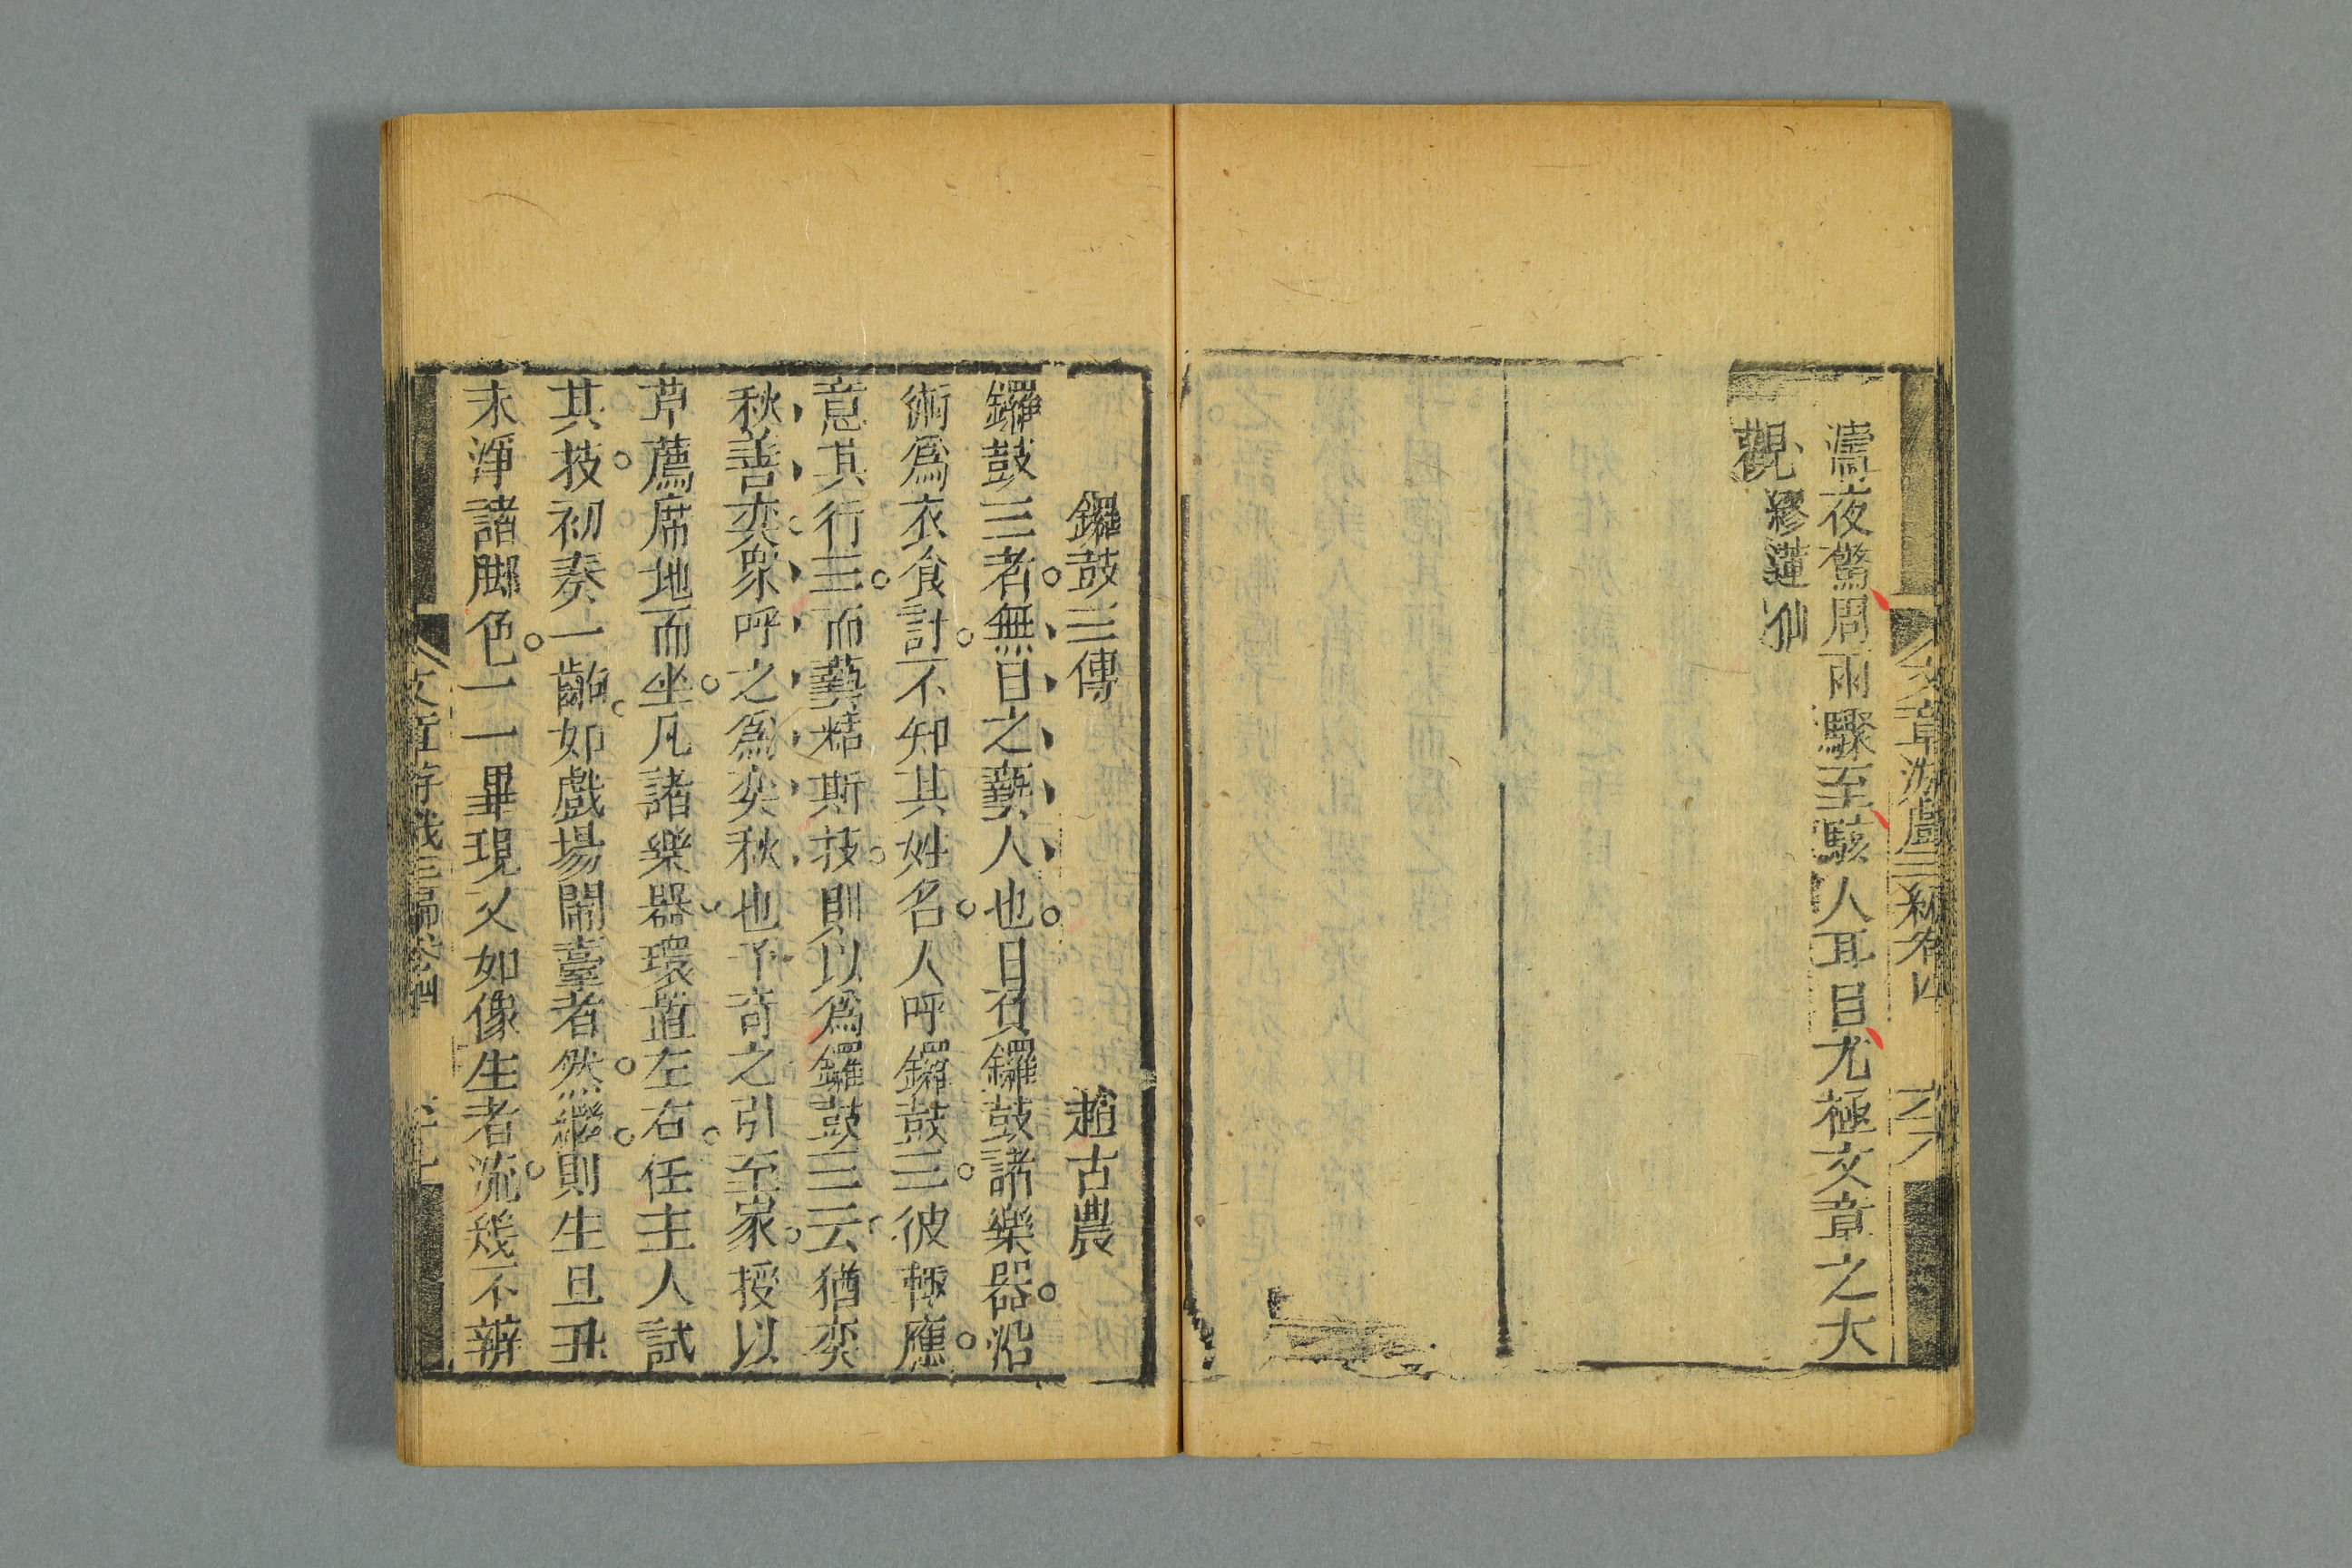 文章游戲三編卷四
六十六
濤夜驚周雨驟至駭人耳目尤極文章之大
觀繆蓮仙
鑼鼓三傳 趙古農
鑼鼓三者。無目之藝人也。日負鑼鼓諸樂器。沿
術爲衣食計。不知其姓名。人呼鑼鼓三。彼輒應。
意其行三。而藝精斯技。則以爲鑼鼓三云。猶奕
秋善奕。衆呼之爲奕秋也。予奇之。引至家。授以
薦席地而坐。凡諸樂器。環置左右。任主人試
其技。初奏一齣。如戲場鬧臺者然。繼則生旦丑
末淨諸脚色。一一畢現。又如像生者流。幾不辨
文章游戲三編卷四